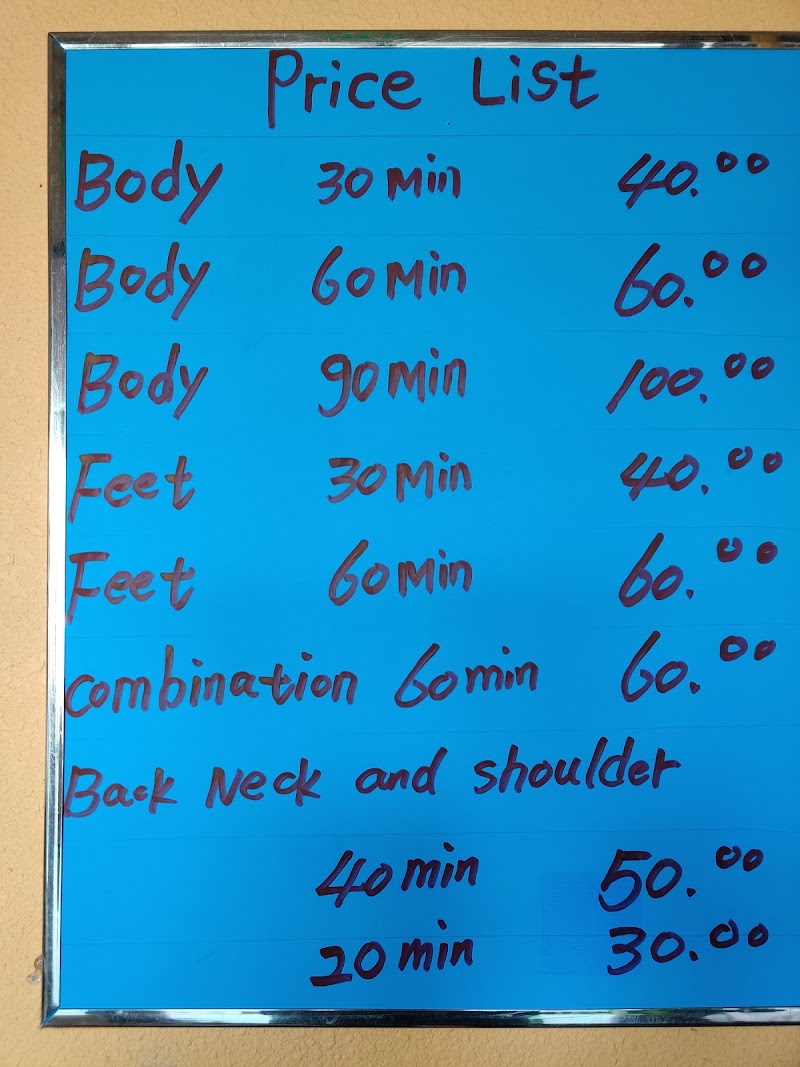 Price List
Body 30 Min 40.00
Body 60 Min 60.00
Body 90 Min 100.00
Feet 30 Min 40.00
Feet 60 Min 60.00
combination 60 min 60.00
Back Neck and shoulder
40 min 50.00
20 min 30.00